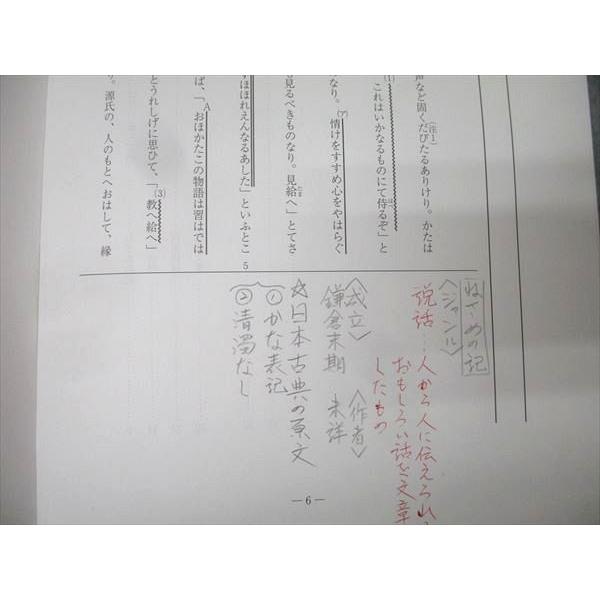 声など固くだびたるありけり。かたは
(注1)
(1)
「これはいかなるものにて侍るぞ」と
なり。(ア)情けをすすめ心をやはらぐ
見るべきものなり。見給へ」とてさ
ほほれえんなるあした」といふとこ
5
ば、「A おほかたこの物語は習はでは
とうれしげに思ひて、「(3)教へ給へ」
り。源氏の、人のもとへおはして、縁
ねざめの記
〈ジャンル〉
説話…人から人に伝えられ
おもしろい話を文章
したもの
〈成立〉
鎌倉末期
〈作者〉
未詳
☆日本古典の原文
①かな表記
②清濁なし
—6—